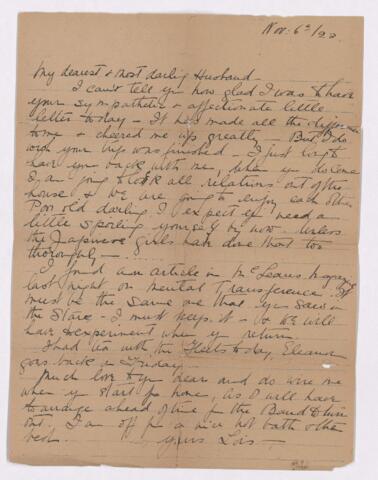 Nov. 6th/22
My dearest & most darling Husband -
I can't tell yu how glad I was to have
your sympathetic & affectionate little
letter to-day - It has made all the difference
to me & cheered me up greatly - But I do
wish your trip was finished - I just long to
have yu back with me, when yu do come
I am going to kick all relations out of the
house & we are going to enjoy each other
Poor old darling I expect yu need a
little spoiling yourself by now - Unless
the Japanese girls have done that too
thoroughly -
I found an article in McLeans Magazine
last night on mental Transference. It
must be the same one that yu saw in
the Stare - I must keep it - & we will
have to experiment when yu return.
I had tea with the to-day, Eleanor
goes back on Friday.
Much love to yu dear and do wire me
when yu start for home, as I will have
to arrange ahead of time for the Band to him
out. I am off for a nice hot bath & then
bed.
yours Lois -